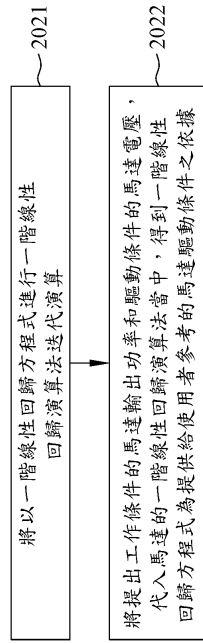 將以一階線性回歸方程式進行一階線性
回歸演算法迭代演算
2021
將提出工作條件的馬達輸出功率和驅動條件的馬達電壓，
代入馬達的一階線性回歸演算法當中，得到一階線性
回歸方程式為提供給使用者參考的馬達驅動條件之依據
2022